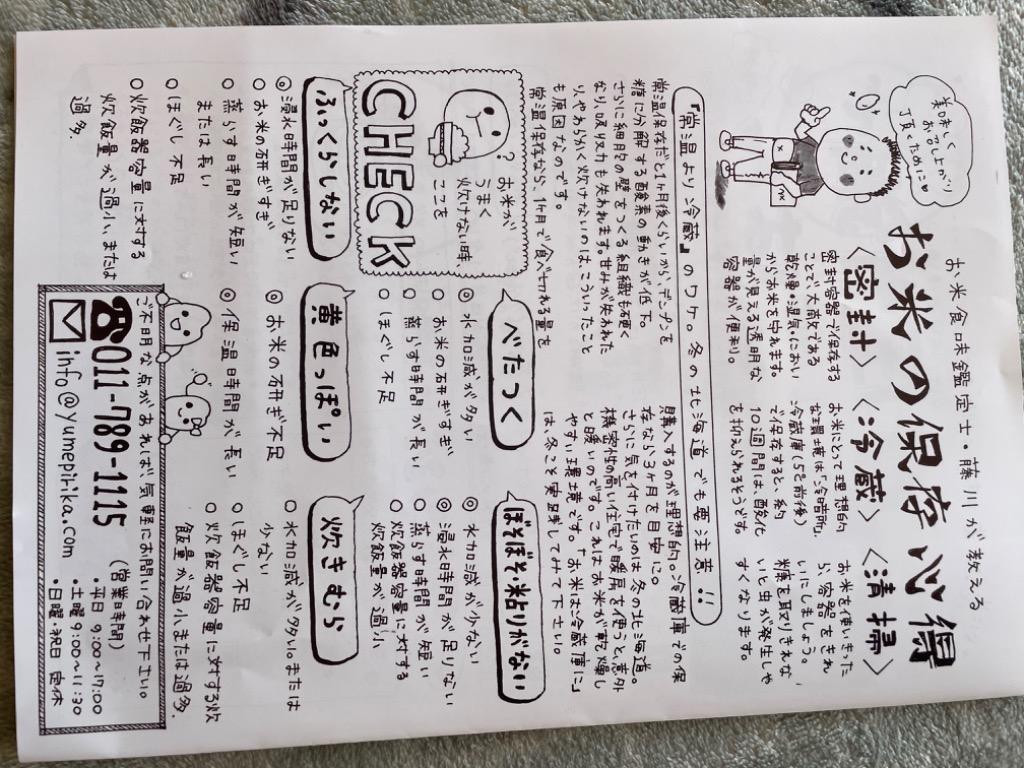 お米食味鑑定士・藤川が教える
お米の保存心得
美味しく
お召し上がり
頂くために♡
〈密封〉
密封容器で保存する
ことで大敵である
乾燥・湿気・におい
からお米を守れます。
量が見える透明な
容器が便利。
〈冷蔵〉
お米にとって理想的
な環境は「冷暗所」。
冷蔵庫(5℃前後)
で保存すると、約
10週間は酸化
を抑えられるそうです。
〈清掃〉
お米を使いきった
ら、容器をきれ
いにしましょう。
糠を取りきれな
いと虫が発生しや
すくなります。
『常温より冷蔵』のワケ。冬の北海道でも要注意!!
常温保存だと1ヶ月後くらいから、デンプンを
糖に分解する酵素の動きが低下。
さらに細胞の壁をつくる組織も硬く
なり、吸収力も失われます。甘みが失われた
り、やわらかく炊けないのは、こういったこと
も原因なのです。
常温保存なら、1ヶ月で食べ切れる量を
購入するのが理想的。冷蔵庫での保
存なら3ヶ月を目安に。
さらに気を付けたいのは冬の北海道。
機密性の高い住宅で暖房を使うと意外
と暖いのです。これはお米が乾燥し
やすい環境です。「お米は冷蔵庫に」
は、冬こそ実践してみて下さい。
?
お米が
うまく
炊けない時、
ここを
CHECK
べたつく
◎水加減が多い
○お米の研ぎすぎ
○蒸らす時間が長い
○ほぐし不足
ぼそぼそ・粘りがない
◎水加減が少ない
◎浸水時間が足りない
○蒸らす時間が短い
○炊飯器容量に対する
炊飯量が過小
ふっくらしない
◎浸水時間が足りない
○お米の研ぎすぎ
○蒸らす時間が短い
または長い
○ほぐし不足
○炊飯器容量に対する
炊飯量が過小、または
過多.
黄色っぽい
◎お米の研ぎ不足
◎保温時間が長い
炊きむら
○水加減が多い。または
少ない
○ほぐし不足
○炊飯器容量に対する炊
飯量が過小または過多.
ご不明な点があれば お気軽にお問い合わせ下さい。
☎011-789-1115
info@yumepirika.com
(営業時間)
・平日 9:00~17:00
・土曜 9:00~11:30
・日曜 祝日 定休